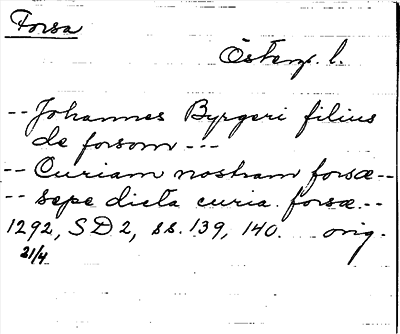 Forsa
Österg. l.
-- Johannes Byrgeri filius
de forsom ---
-- Curiam nostram forsæ --
-- sepe dicta curia forsæ --
1292, SD 2, ss. 139, 140. orig.
21/4